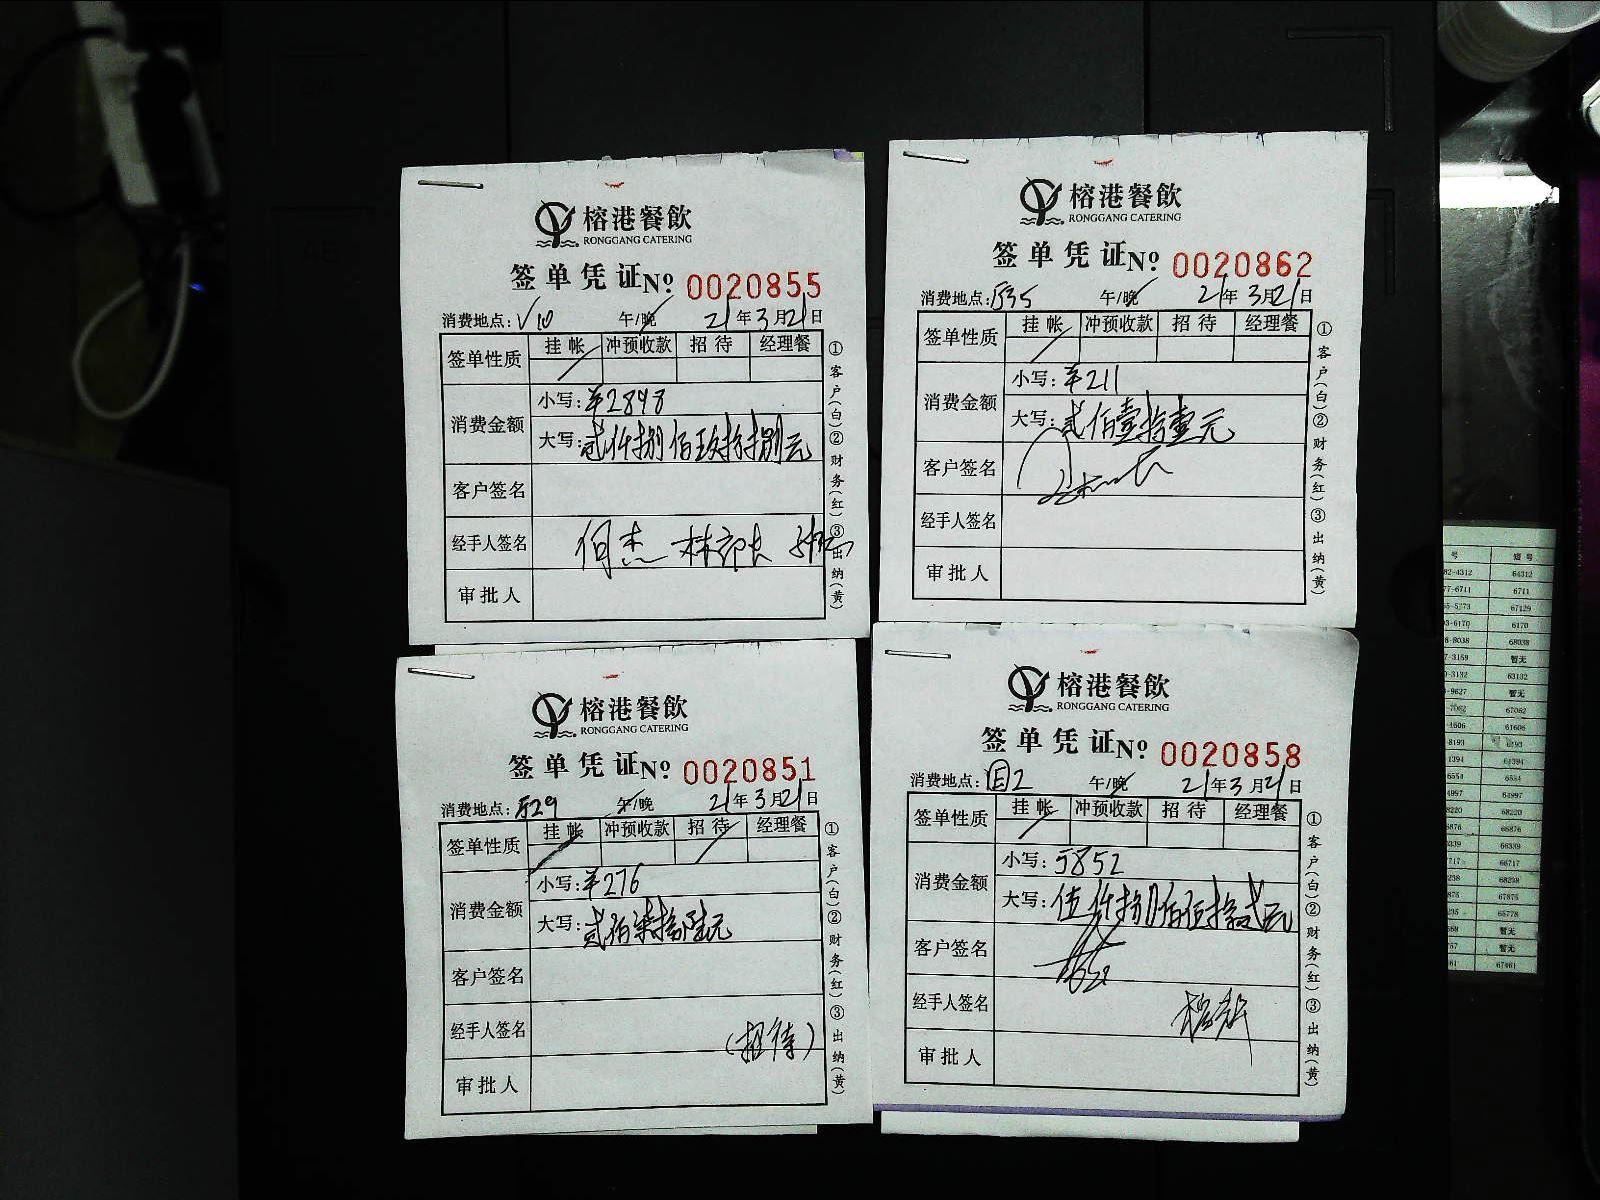 榕港餐飲
RONGGANG CATERING
签单凭证№ 0020855
消费地点:V10 午/晚 21年3月21日
签单性质 挂帐 冲预收款 招待 经理餐
消费金额 小写:¥2898
大写:贰仟捌佰玖拾捌元
客户签名
经手人签名 何杰 林部长
审批人
①客户(白)②财务(红)③出纳(黄)
榕港餐飲
RONGGANG CATERING
签单凭证№ 0020862
消费地点: 午/晚 21年3月21日
签单性质 挂帐 冲预收款 招待 经理餐
消费金额 小写:¥211
大写:贰佰壹拾壹元
客户签名
经手人签名
审批人
①客户(白)②财务(红)③出纳(黄)
榕港餐飲
RONGGANG CATERING
签单凭证№ 0020851
消费地点: 午/晚 21年3月21日
签单性质 挂帐 冲预收款 招待 经理餐
消费金额 小写:¥276
大写:贰佰柒拾陆元
客户签名
经手人签名 (招待)
审批人
①客户(白)②财务(红)③出纳(黄)
榕港餐飲
RONGGANG CATERING
签单凭证№ 0020858
消费地点: 午/晚 21年3月21日
签单性质 挂帐 冲预收款 招待 经理餐
消费金额 小写:5852
大写:伍仟捌佰伍拾贰元
客户签名
经手人签名
审批人
①客户(白)②财务(红)③出纳(黄)
号 短号
82-4312 64312
77-6711 6711
67129
93-6170 6170
8-8038 68038
7-3159 暂无
0-3132 63132
-9627 暂无
-7062 67062
-1606 61606
8193
1394 61394
6554 6554
4997 64997
8220 68220
6876 66876
6339 66339
7717 66717
68298
67875
65778
暂无
暂无
67461